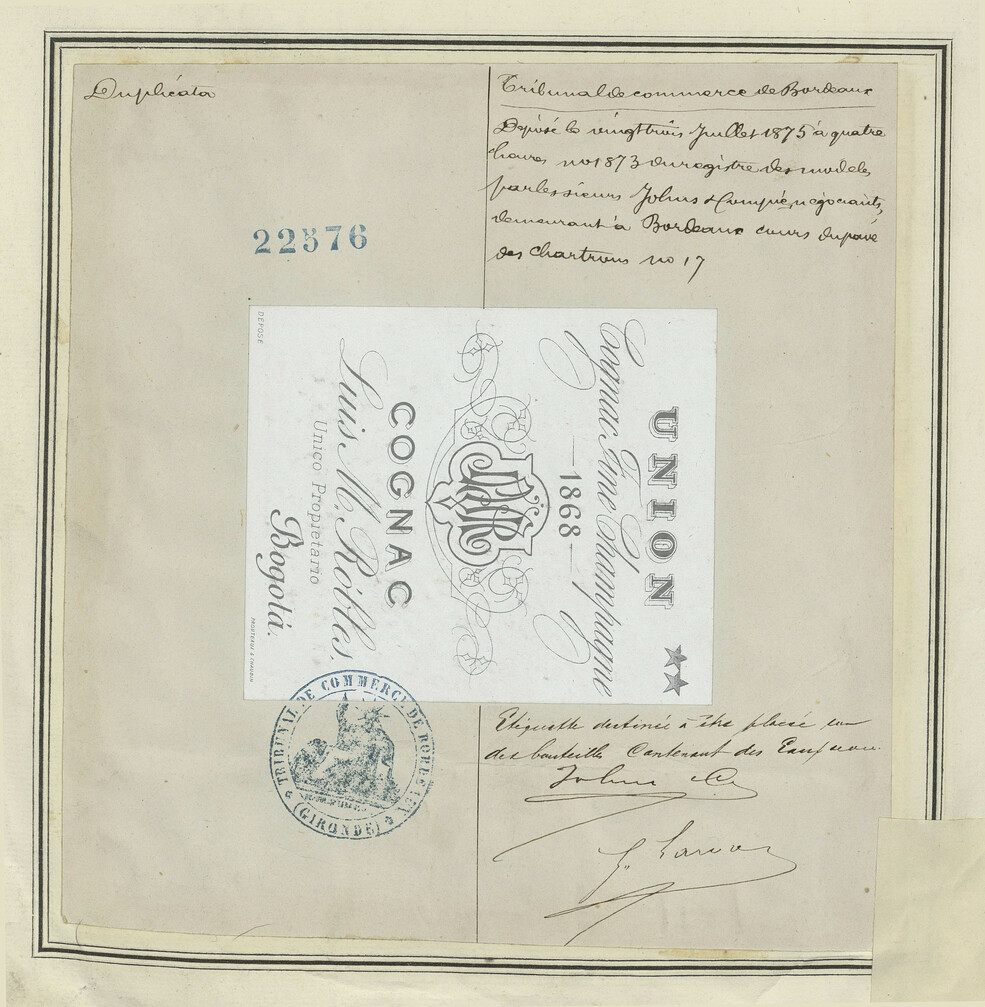 Duplicata
Tribunal de commerce de Bordeaux
Déposé le vingt trois Juillet 1875 à quatre
heures no 1873 du registre des modèles
par les sieurs Johns & Compie, négociants,
demeurant à Bordeaux cours du pavé
des Chartrons no 17
22576
UNION
Cognac Fine Champagne
—1868—
COGNAC
Luis M. Robles,
Unico Propietario
Bogotá.
DEPOSÉ
TRIBUNAL DE COMMERCE DE BORDEAUX
(GIRONDE)
Etiquette destinée à être placée sur
des bouteilles Contenant des Eaux
Johns